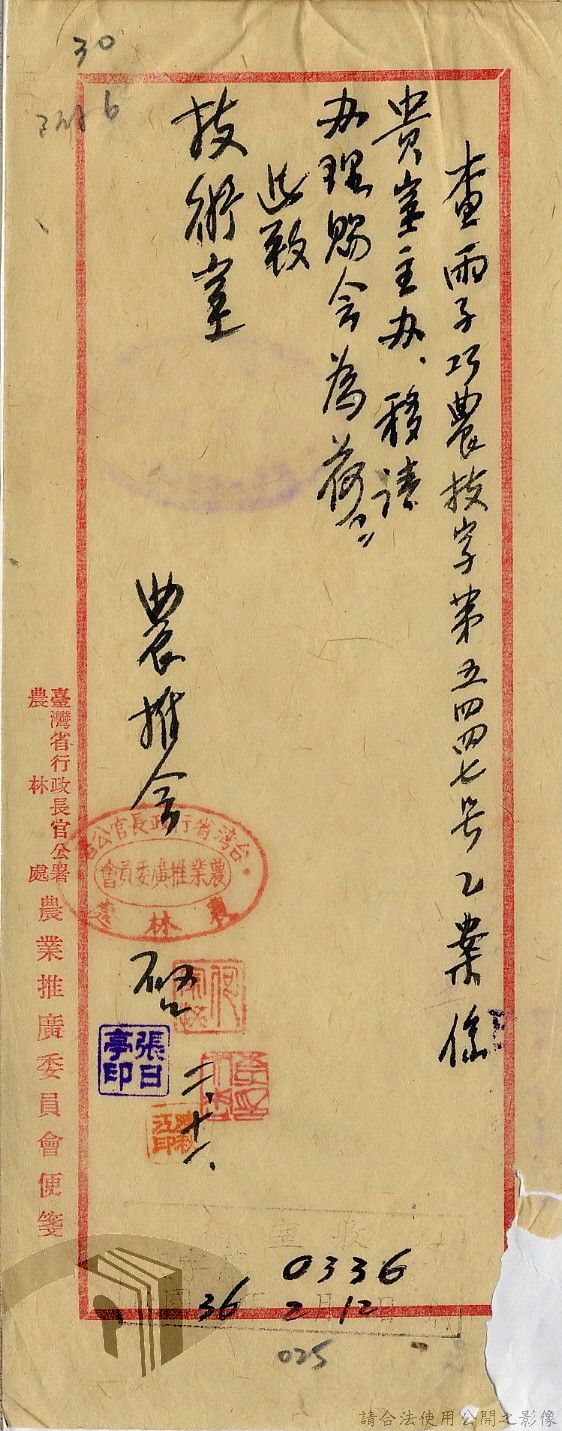 30
查丙子巧農技字第五四四七号乙案係
貴室主办、移請
办理賜会為荷
此致
技術室
農推会
啓 二、十一、
台湾省行政長官公署
農業推廣委員會
農林處
張日亭印
臺灣省行政長官公署
農林處
農業推廣委員會便箋
收
0336
36 2 12
025
請合法使用公開之影像